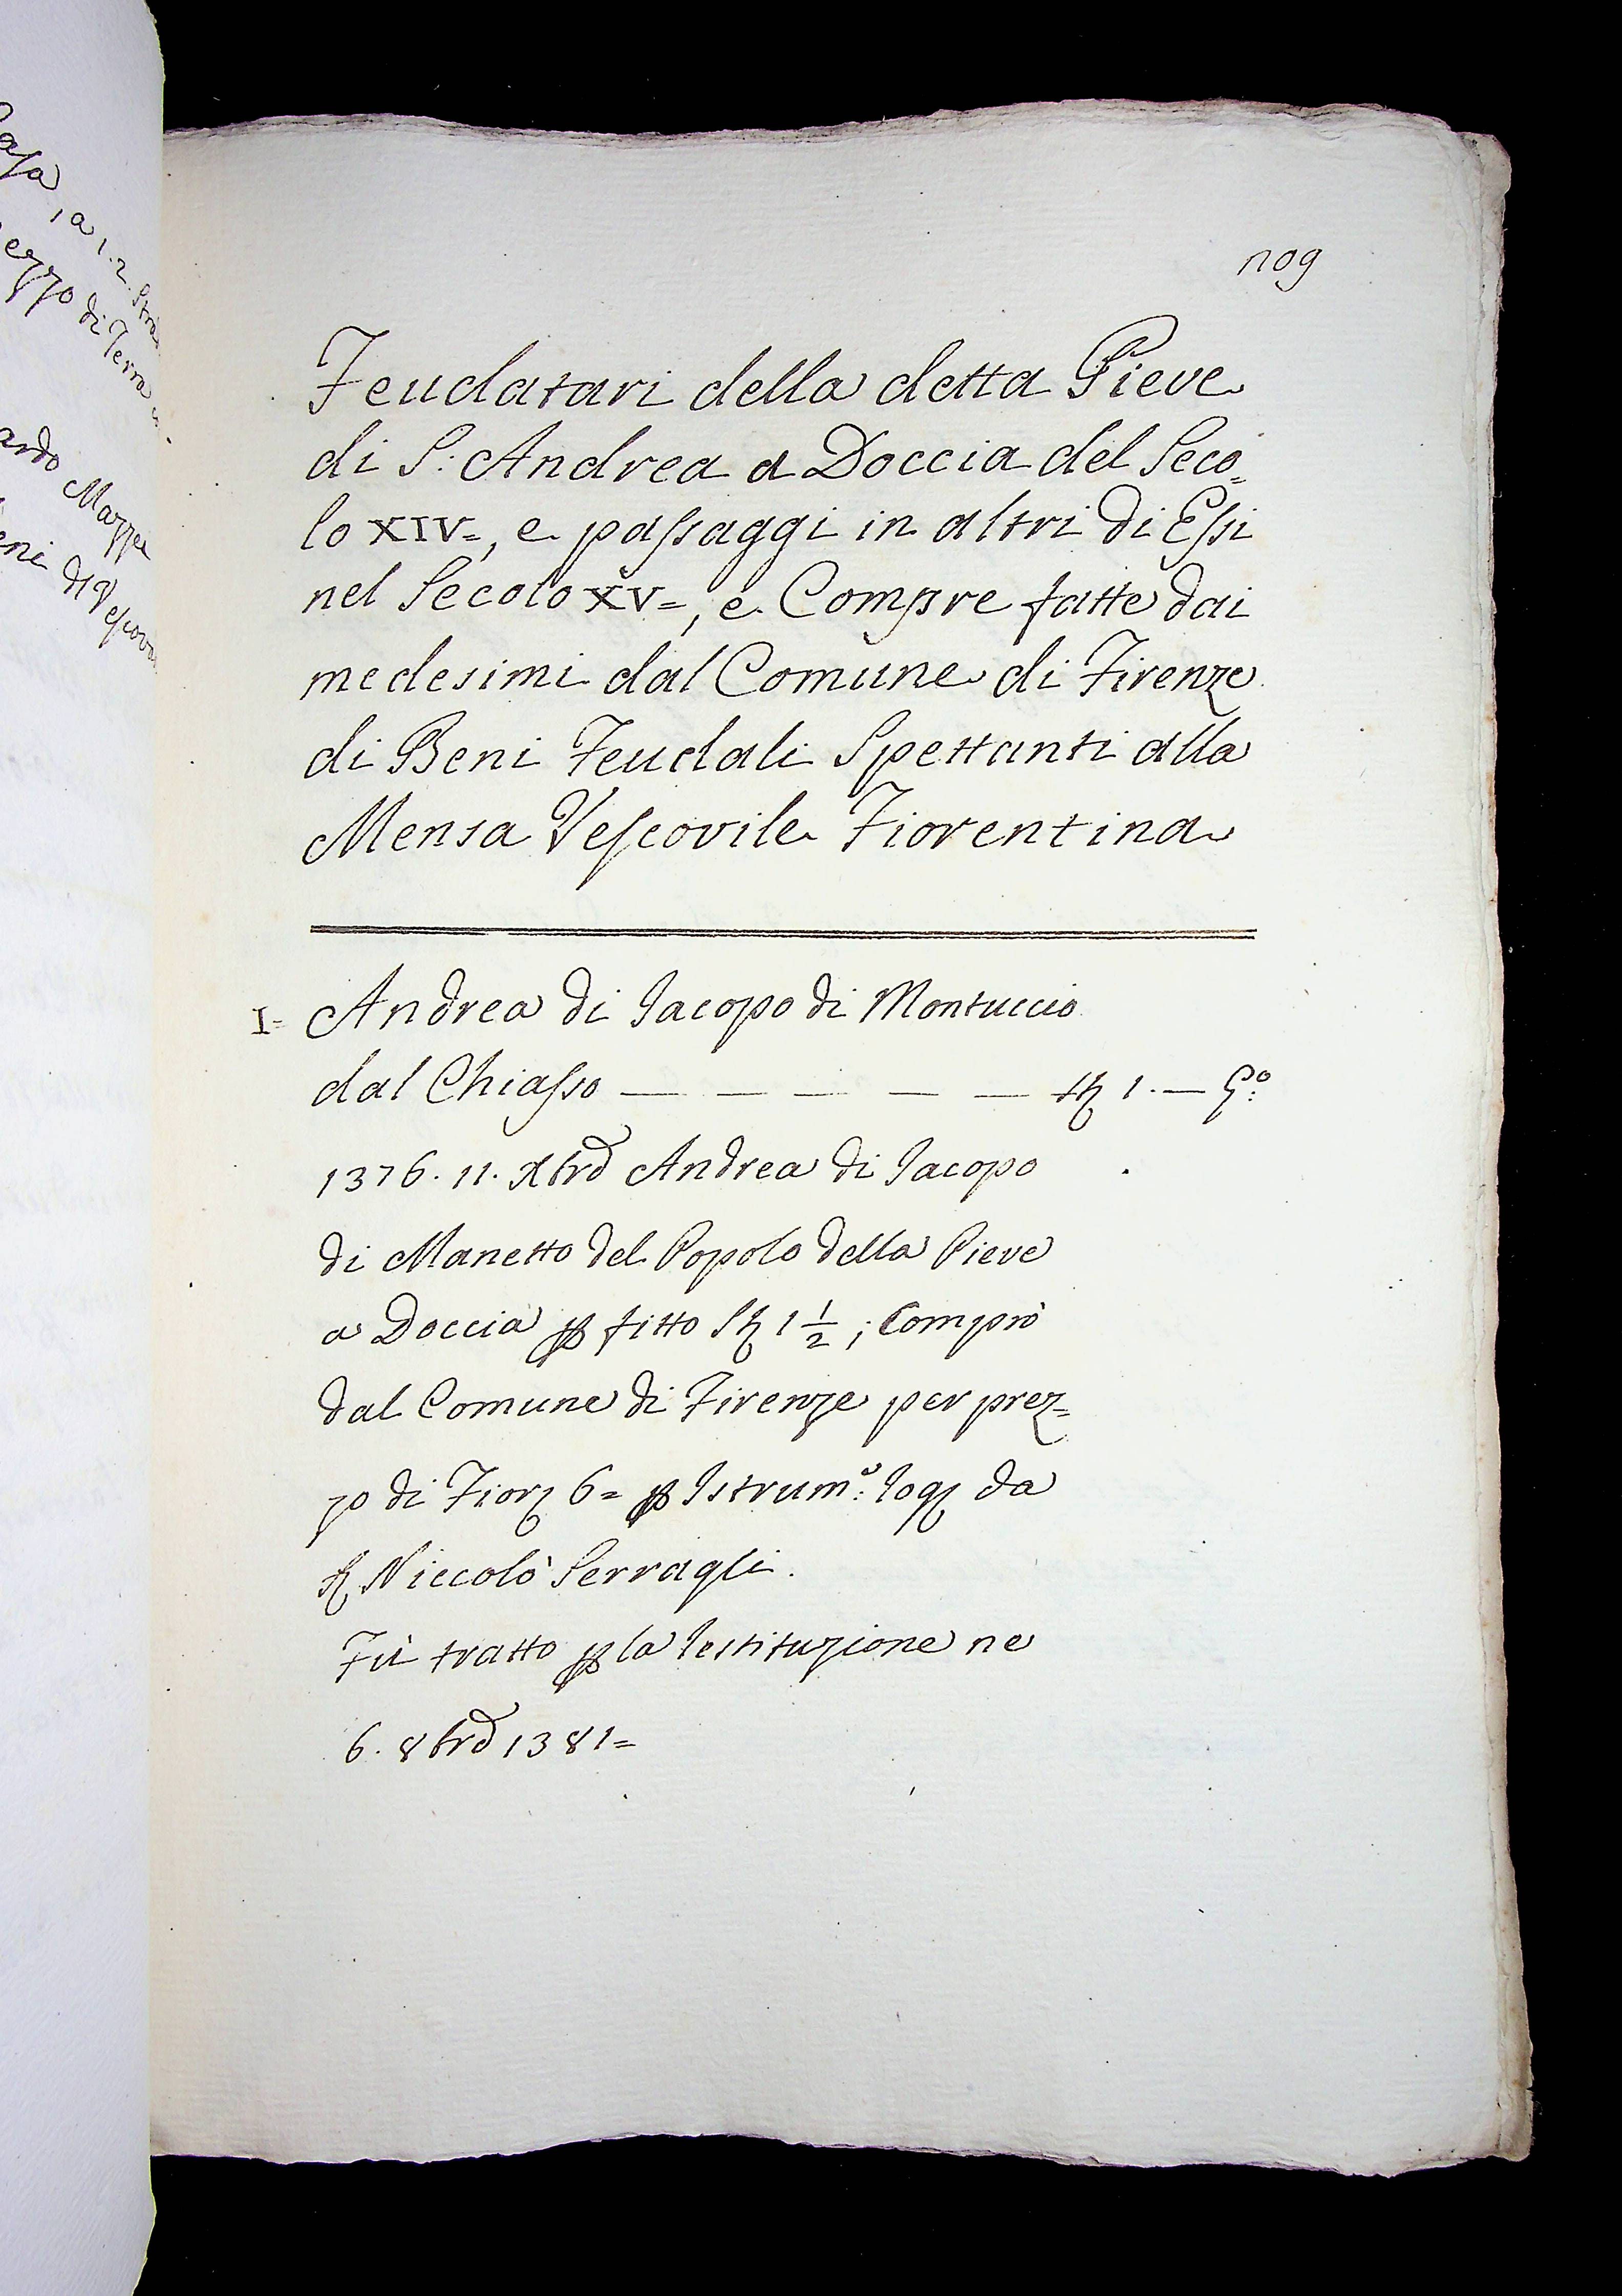 aſa, a 1. 2. Stra
ezzo di Terra
ardo Mazze
eni di Veſcova
1109
Feudatari della detta Pieve
di S: Andrea a Doccia del Seco=
lo XIV=, e paſsaggi in altri di Eſsi
nel Secolo XV=, e Compre fatte dai
medesimi dal Comune di Firenze
di Beni Feudali Spettanti alla
Mensa Veſcovile Fiorentina
I= Andrea di Jacopo di Montuccio
dal Chiaſso — — — — — 1. — G:º
1376. 11. Xbre Andrea di Jacopo
di Manetto del Popolo della Pieve
a Doccia ꝑ fitto 1 1/2; Comprò
dal Comune di Firenze per prez=
zo di Fior 6= ꝑ Istrum:º rog da
Niccolò Serragli.
Fù tratto ꝑ la restituzione ne
6. 8bre 1381=